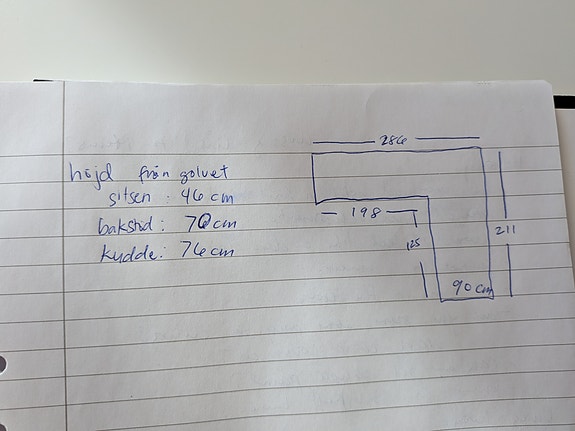 286
höjd från golvet
sitsen: 46 cm
198
bakstöd: 70 cm
125
211
kudde: 76 cm
90 cm